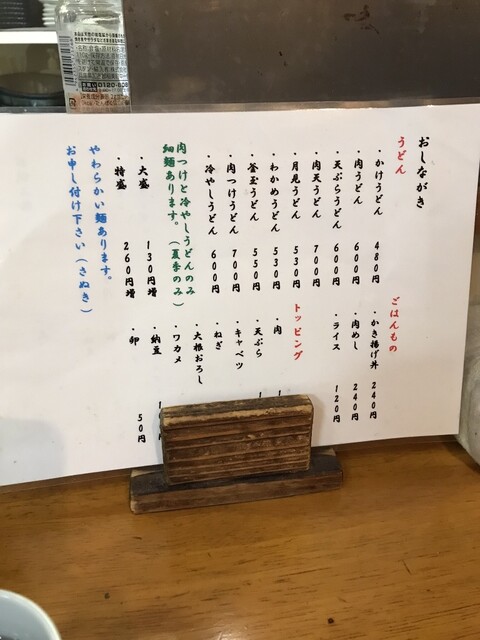 おしながき
うどん
・かけうどん 480円
・肉うどん 600円
・天ぷらうどん 600円
・肉天うどん 700円
・月見うどん 530円
・わかめうどん 530円
・釜玉うどん 550円
・肉つけうどん 700円
・冷やしうどん 600円
肉つけと冷やしうどんのみ
細麺あります。(夏季のみ)
・大盛 130円増
・特盛 260円増
やわらかい麺あります。
お申し付け下さい(さぬき)
ごはんもの
・かき揚げ丼 240円
・肉めし 240円
・ライス 120円
トッピング
・肉
・天ぷら
・キャベツ
・ねぎ
・大根おろし
・ワカメ
・納豆
・卵 50円
0120-80